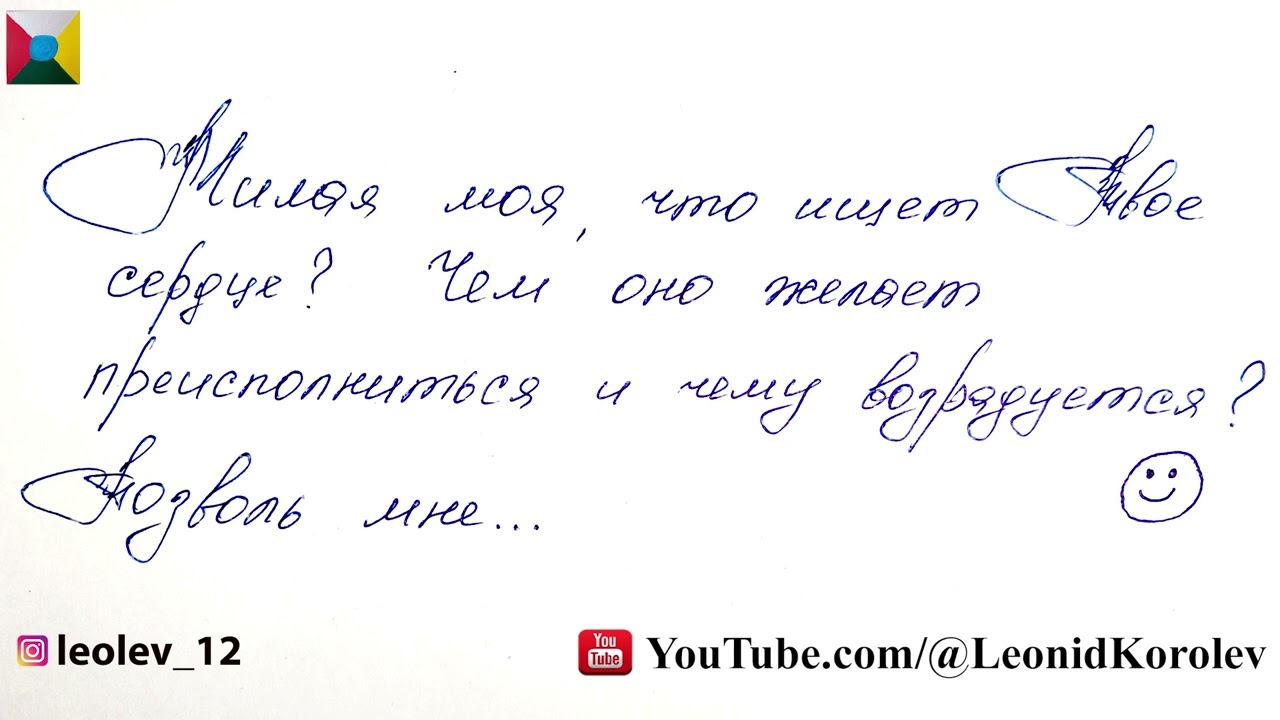 Милая моя, что ищет Твое
сердце? Чем оно желает
преисполниться и чему возрадуется?
Позволь мне...
leolev_12
You Tube
YouTube.com/@LeonidKorolev